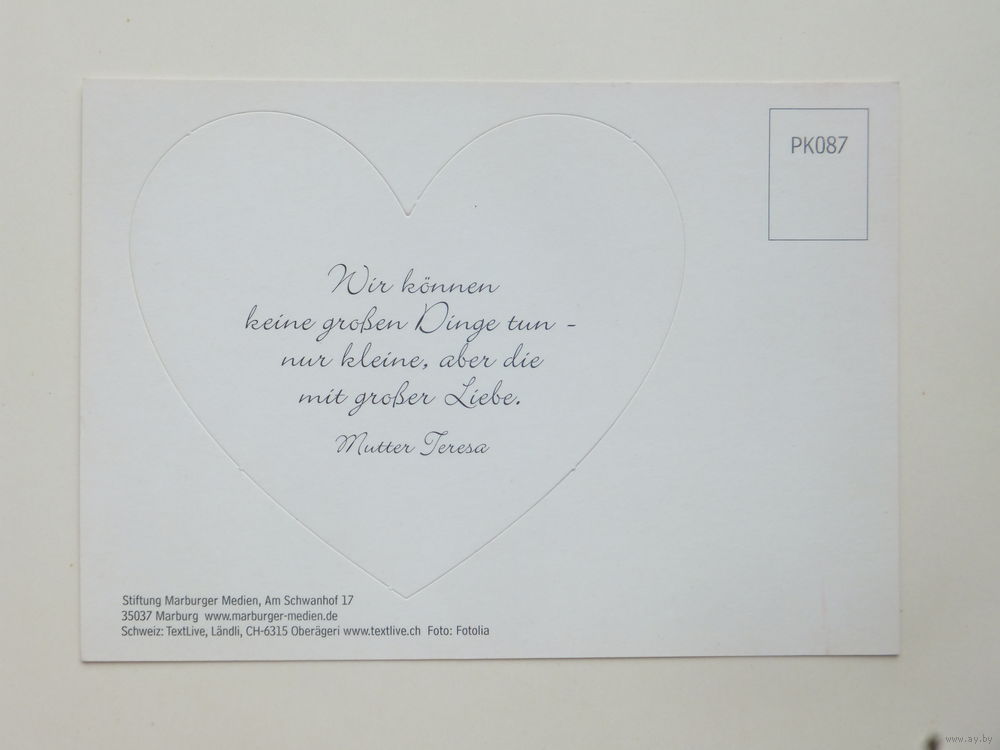 PK087
Wir können
keine großen Dinge tun -
nur kleine, aber die
mit großer Liebe.
Mutter Teresa
Stiftung Marburger Medien, Am Schwanhof 17
35037 Marburg www.marburger-medien.de
Schweiz: TextLive, Ländli, CH-6315 Oberägeri www.textlive.ch Foto: Fotolia
www.ay.by